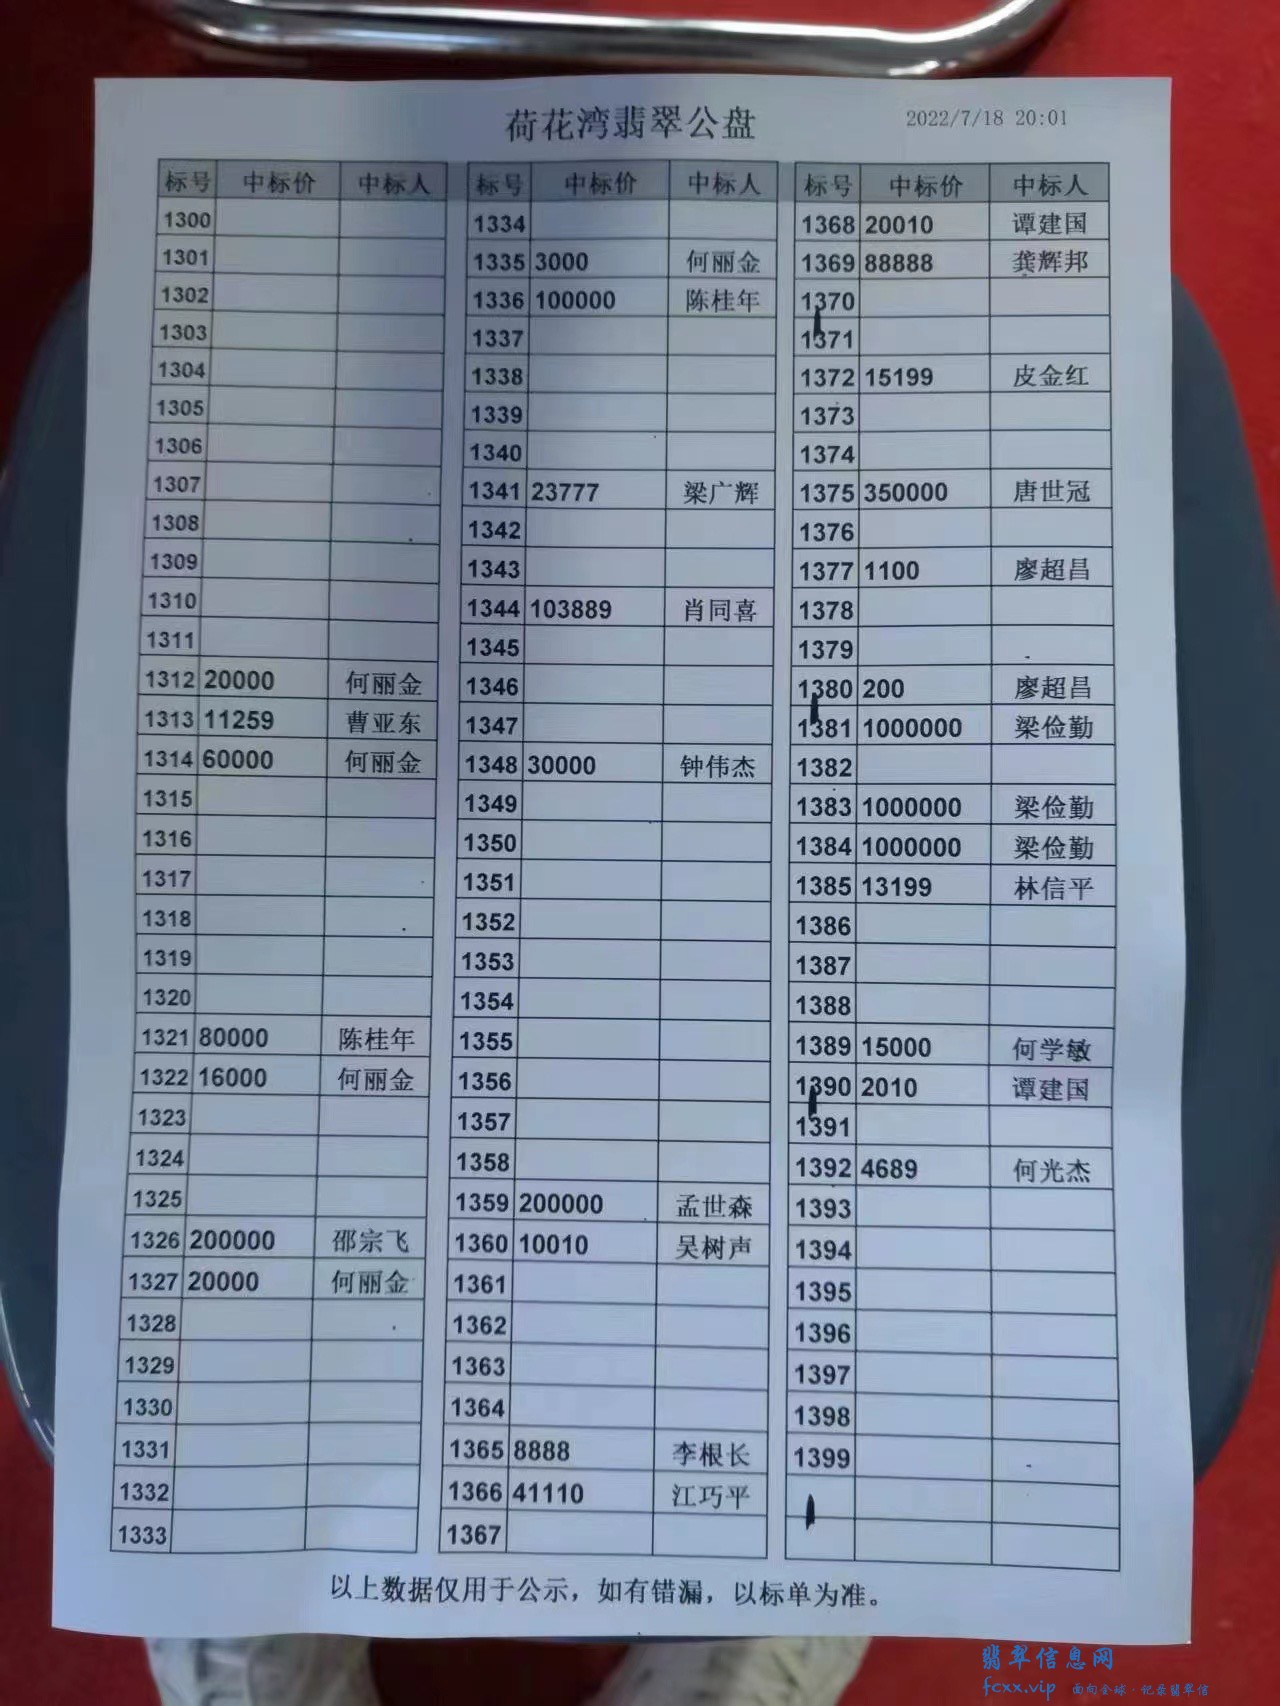 荷花湾翡翠公盘
2022/7/18 20:01
标号 中标价 中标人
1300
1301
1302
1303
1304
1305
1306
1307
1308
1309
1310
1311
1312 20000 何丽金
1313 11259 曹亚东
1314 60000 何丽金
1315
1316
1317
1318
1319
1320
1321 80000 陈桂年
1322 16000 何丽金
1323
1324
1325
1326 200000 邵宗飞
1327 20000 何丽金
1328
1329
1330
1331
1332
1333
标号 中标价 中标人
1334
1335 3000 何丽金
1336 100000 陈桂年
1337
1338
1339
1340
1341 23777 梁广辉
1342
1343
1344 103889 肖同喜
1345
1346
1347
1348 30000 钟伟杰
1349
1350
1351
1352
1353
1354
1355
1356
1357
1358
1359 200000 孟世森
1360 10010 吴树声
1361
1362
1363
1364
1365 8888 李根长
1366 41110 江巧平
1367
标号 中标价 中标人
1368 20010 谭建国
1369 88888 龚辉邦
1370
1371
1372 15199 皮金红
1373
1374
1375 350000 唐世冠
1376
1377 1100 廖超昌
1378
1379
1380 200 廖超昌
1381 1000000 梁俭勤
1382
1383 1000000 梁俭勤
1384 1000000 梁俭勤
1385 13199 林信平
1386
1387
1388
1389 15000 何学敏
1390 2010 谭建国
1391
1392 4689 何光杰
1393
1394
1395
1396
1397
1398
1399
以上数据仅用于公示，如有错漏，以标单为准。
翡翠信息网
fcxx.vip 面向全球·记录翡翠信